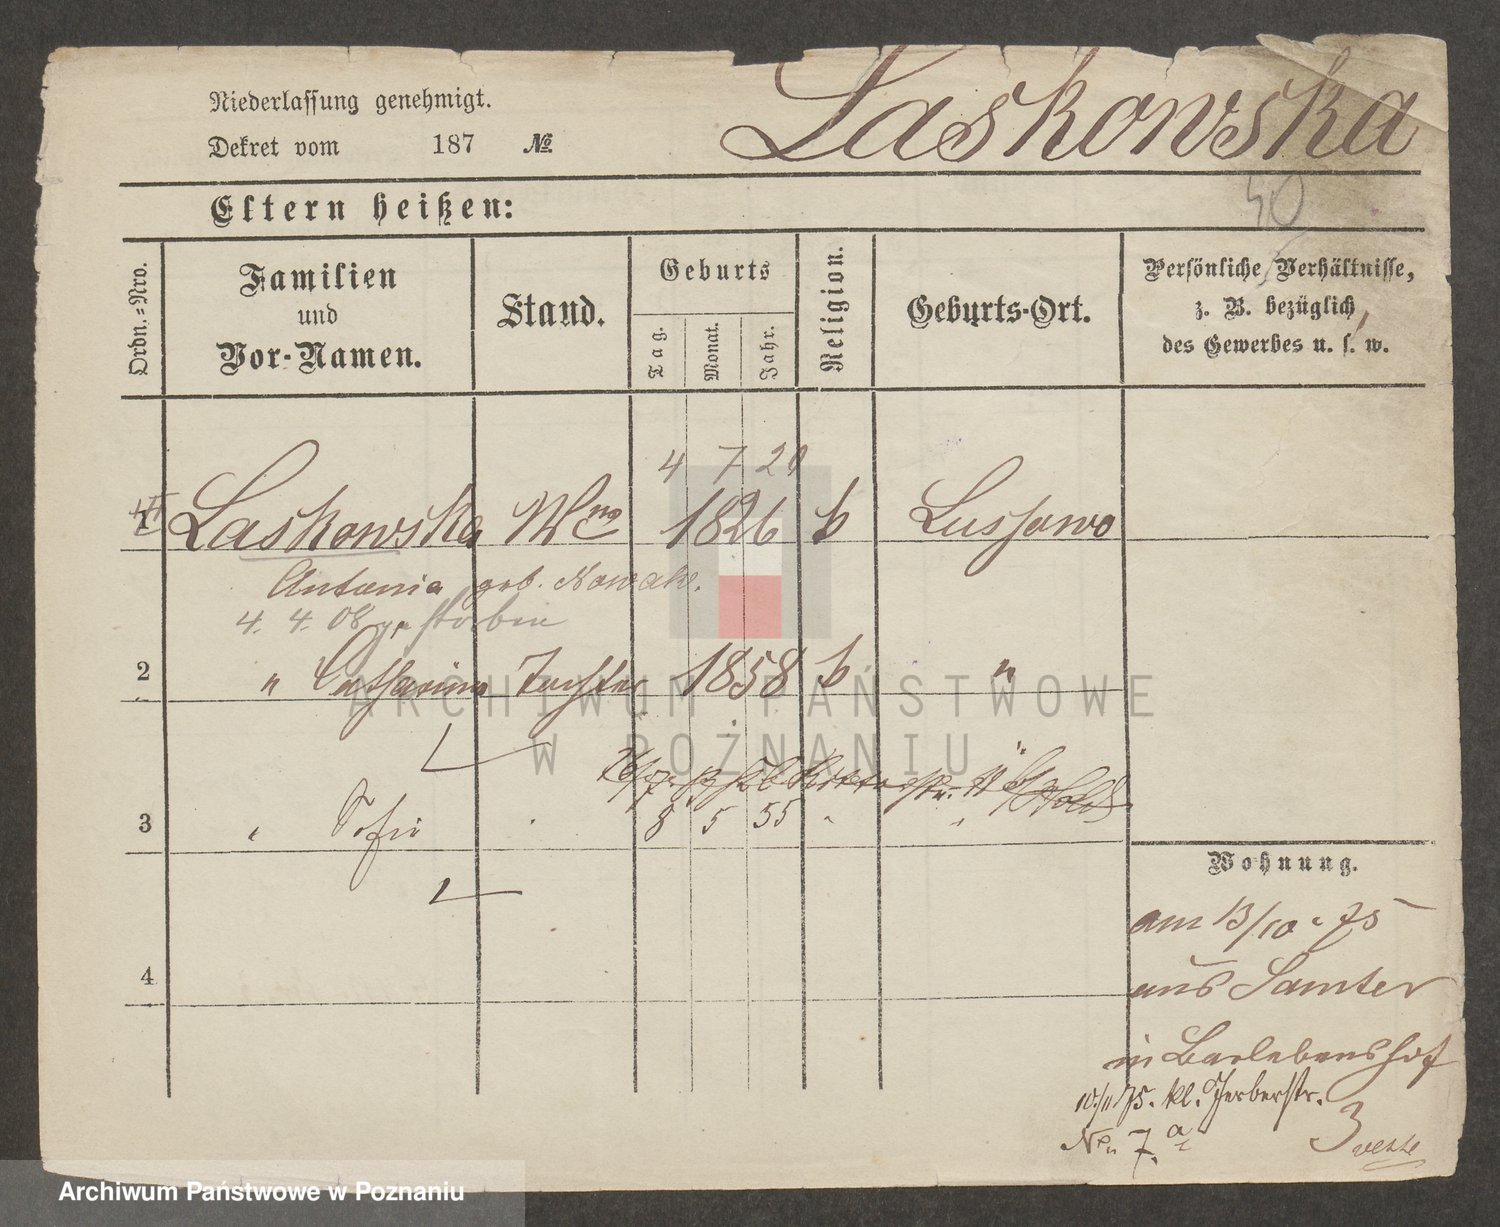 Niederlassung genehmigt.
Laskowska
Dekret vom 187 №
50
Eltern heißen:
Ordn.=Nro.
Familien
und
Vor-Namen.
Stand.
Geburts
Tag.
Monat.
Jahr.
Religion.
Geburts-Ort.
Persönliche Verhältnisse,
z. B. bezüglich
des Gewerbes u. s. w.
4 7 20
1 Laskowska Wwe 1826 k Lussowo
Antonia geb. Nowak.
4. 4. 08 gestorben
2 " Catharina Tochter 1858 k "
3 " Sofie 8 5 55 "
Wohnung.
am 13/10 75
4
aus Samter
in Barlebenshof
10/11 75. kl. Gerberstr.
No. 7.a
ARCHIWUM PAŃSTWOWE
W POZNANIU
Archiwum Państwowe w Poznaniu